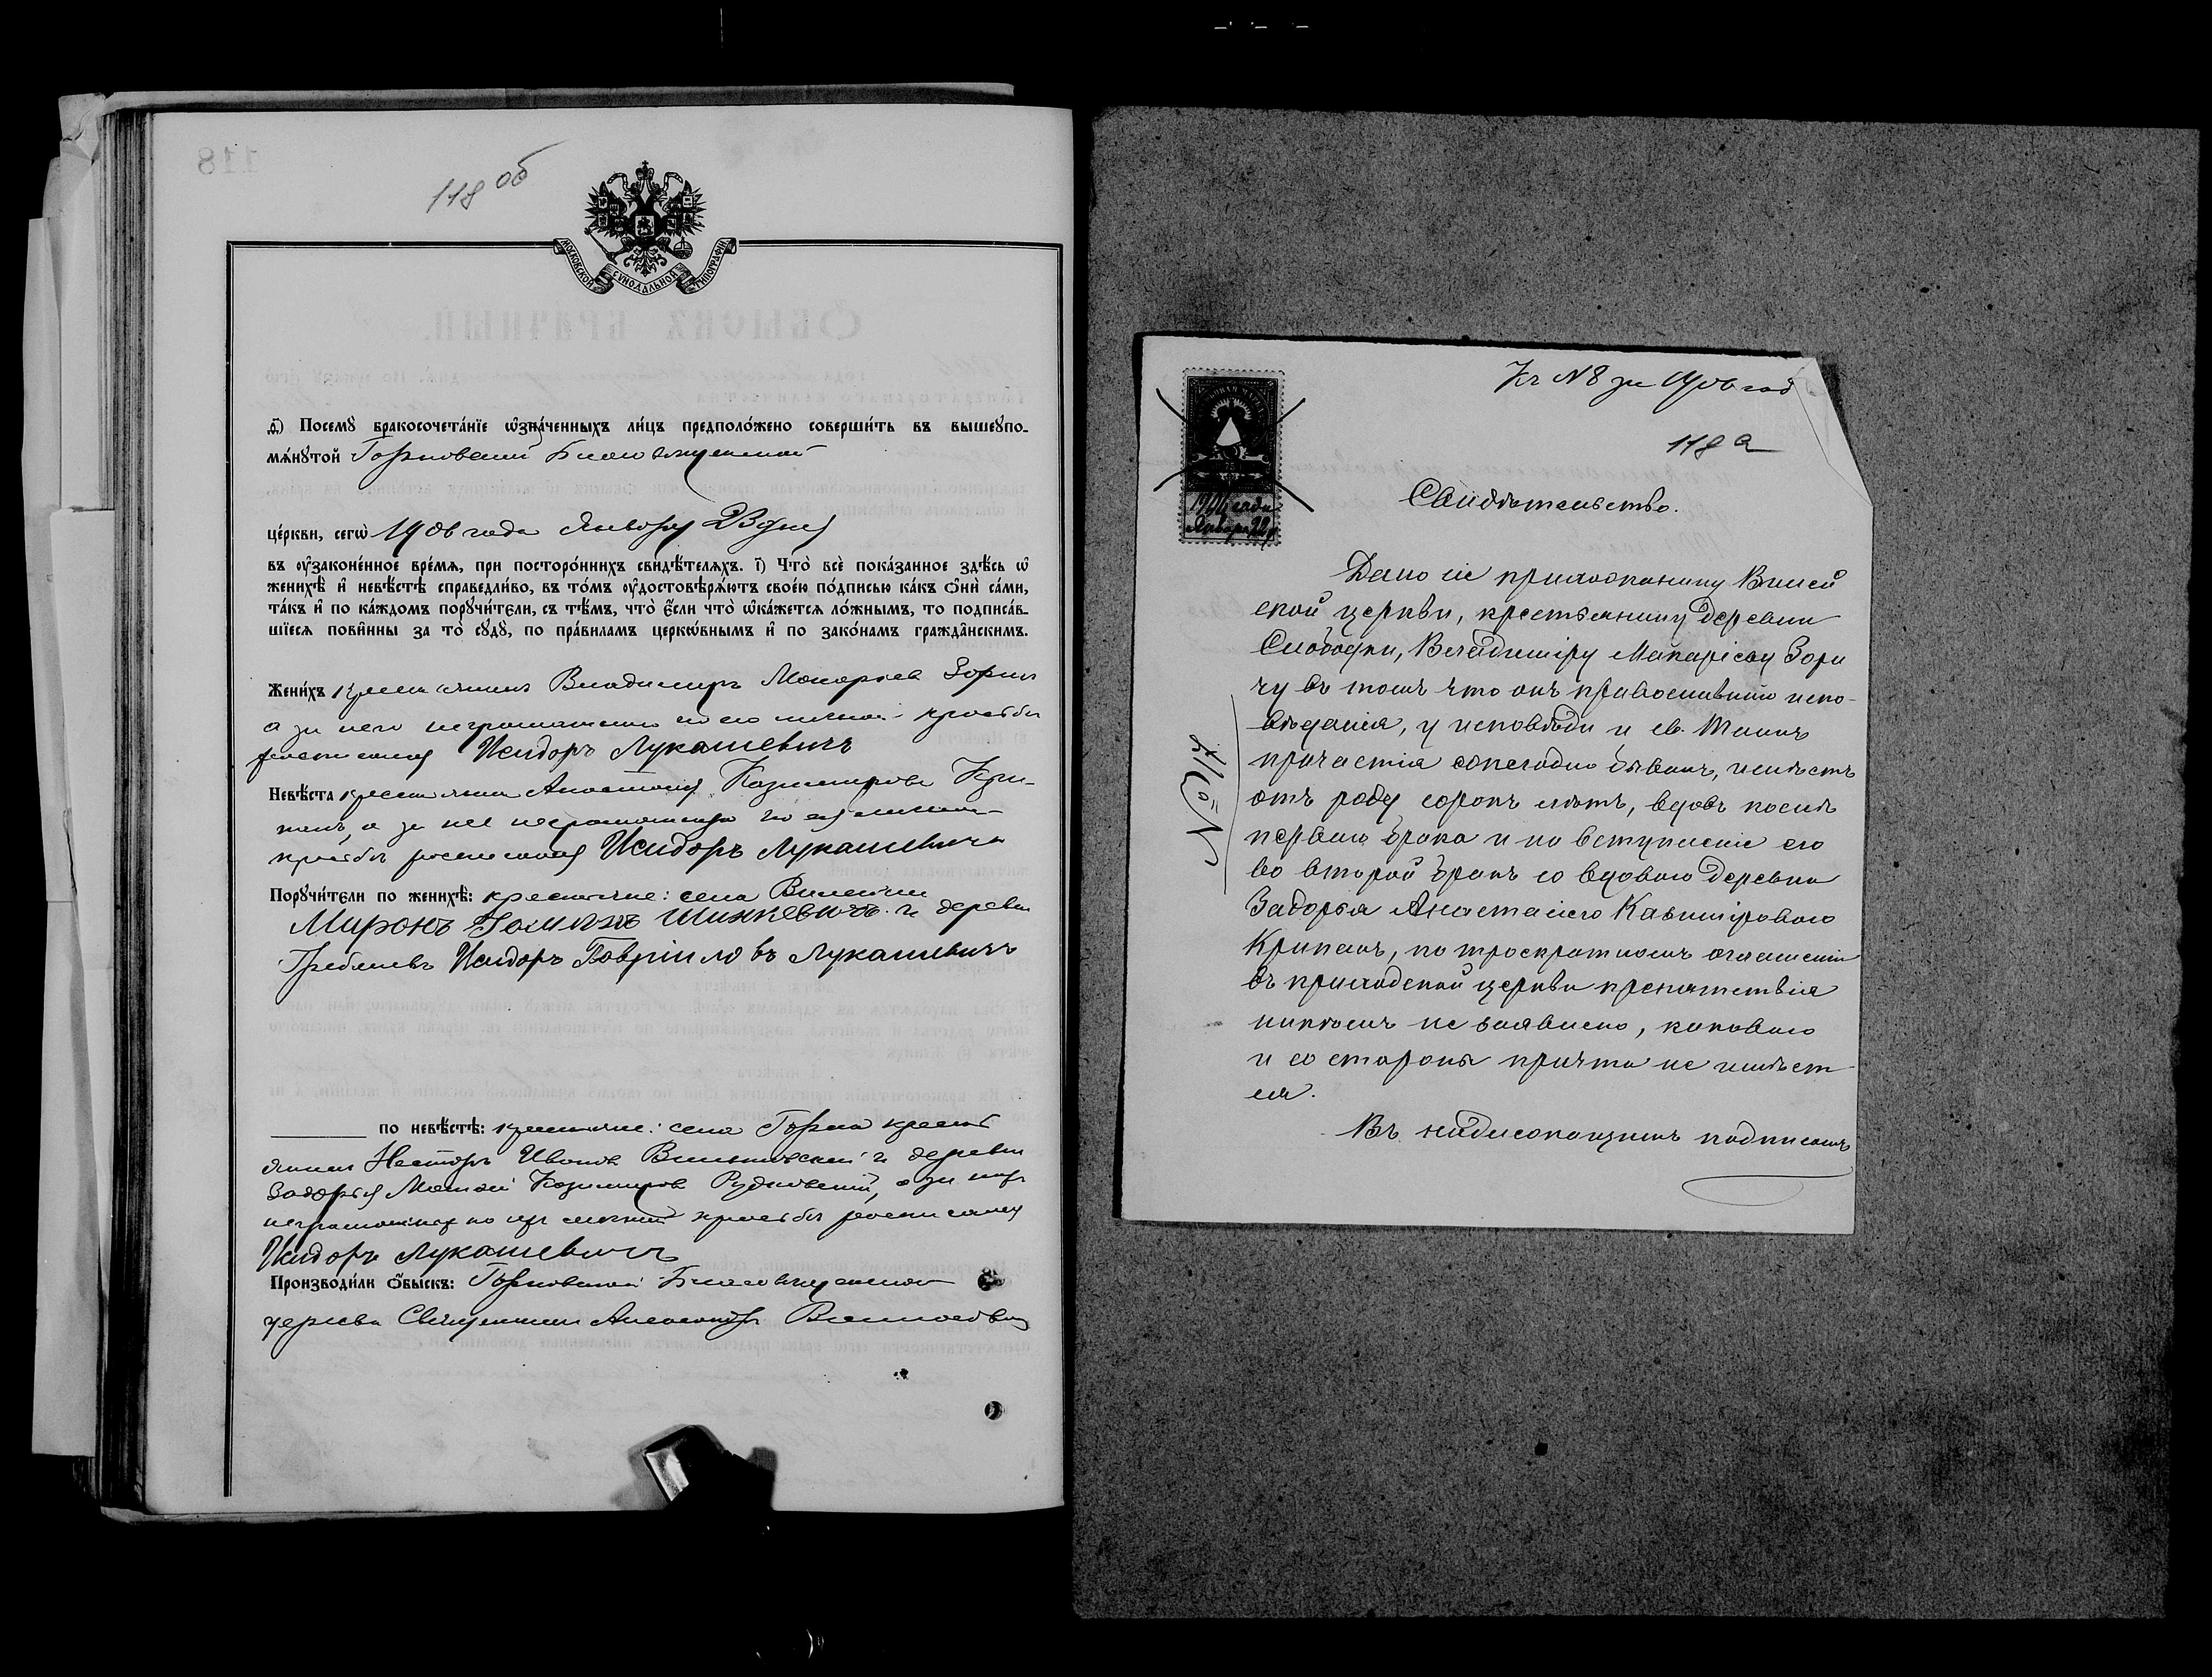 118 об
МОСКОВСКОЙ СѴНОДАЛЬНОЙ ТИПОГРАФІИ
ѳ҃) Посемꙋ̀ бракосочета́нїе ѡ҆зна́ченныхъ ли́цъ предполо́жено соверши́ть въ вышеꙋпо-
мѧ́нꙋтой Горковской Благовѣщенской
це́ркви, сегѡ̀ 1906 года Января 23 дня
въ ᲂу҆зако́ненное вре́мѧ, при посторо́ннихъ свидѣ́телѧхъ. і҃) Что̀ всѐ пока́занное здѣ́сь ѡ҆
женихѣ̀ и҆ невѣ́стѣ справедли́во, въ то́мъ ᲂу҆достовѣрѧ́ютъ свое́ю по́дписью ка́къ ѻ҆нѝ са́ми,
та́къ и҆ по ка́ждомъ порꙋчи́тели, съ тѣ́мъ, что̀ є҆́сли что̀ ѡ҆ка́жетсѧ ло́жнымъ, то подписа́в-
шїесѧ пови́нны за то̀ сꙋдꙋ̀, по пра́виламъ церко́внымъ и҆ по зако́намъ гражда́нскимъ.
Жени́хъ крестьянинъ Владимиръ Макарьев Зорич
а за него неграмотнаго по его личной просьбѣ
росписался Исидоръ Лукашевичъ
Невѣ́ста крестьянка Анастасія Казимирова
а за нее неграмотную по ея личной
просьбѣ росписался Исидоръ Лукашевичъ
Порꙋчи́тели по женихѣ̀: крестьяне: села
Миронъ Шинкевичъ и деревни
Гребенев Исидоръ Гавріиловъ Лукашевичъ
по невѣ́стѣ: крестьяне: села Горка крестья
нинъ Несторъ Иванов и деревни
Задорья Казимиров Рудковскій, а за нихъ
неграмотных по их личной просьбѣ росписался
Исидоръ Лукашевичъ
Производи́ли ѻ҆́быскъ: Горковской Благовѣщенской
церкви Священник Александръ
Къ № 8 за 1906 год
118 а
1906 года
Января 22 д
Свидѣтельство.
Дано сіе прихожанину
ской церкви, крестьянину деревни
Слободки, Владиміру Макаріеву Зори
чу въ томъ что онъ православнаго испо-
вѣданія, у исповѣди и св. Таинъ
причастія ежегодно бывалъ, имѣетъ
отъ роду сорокъ лѣтъ, вдовъ послѣ
перваго брака и на вступленіе его
во второй бракъ со вдовою деревни
Задорья Анастасіею Казиміровою
Крипанъ, по троекратномъ оглашеніи
въ приходской церкви препятствія
никѣмъ не заявлено, каковаго
и со стороны причта не имѣет
ся.
Въ надлежащимъ подписомъ